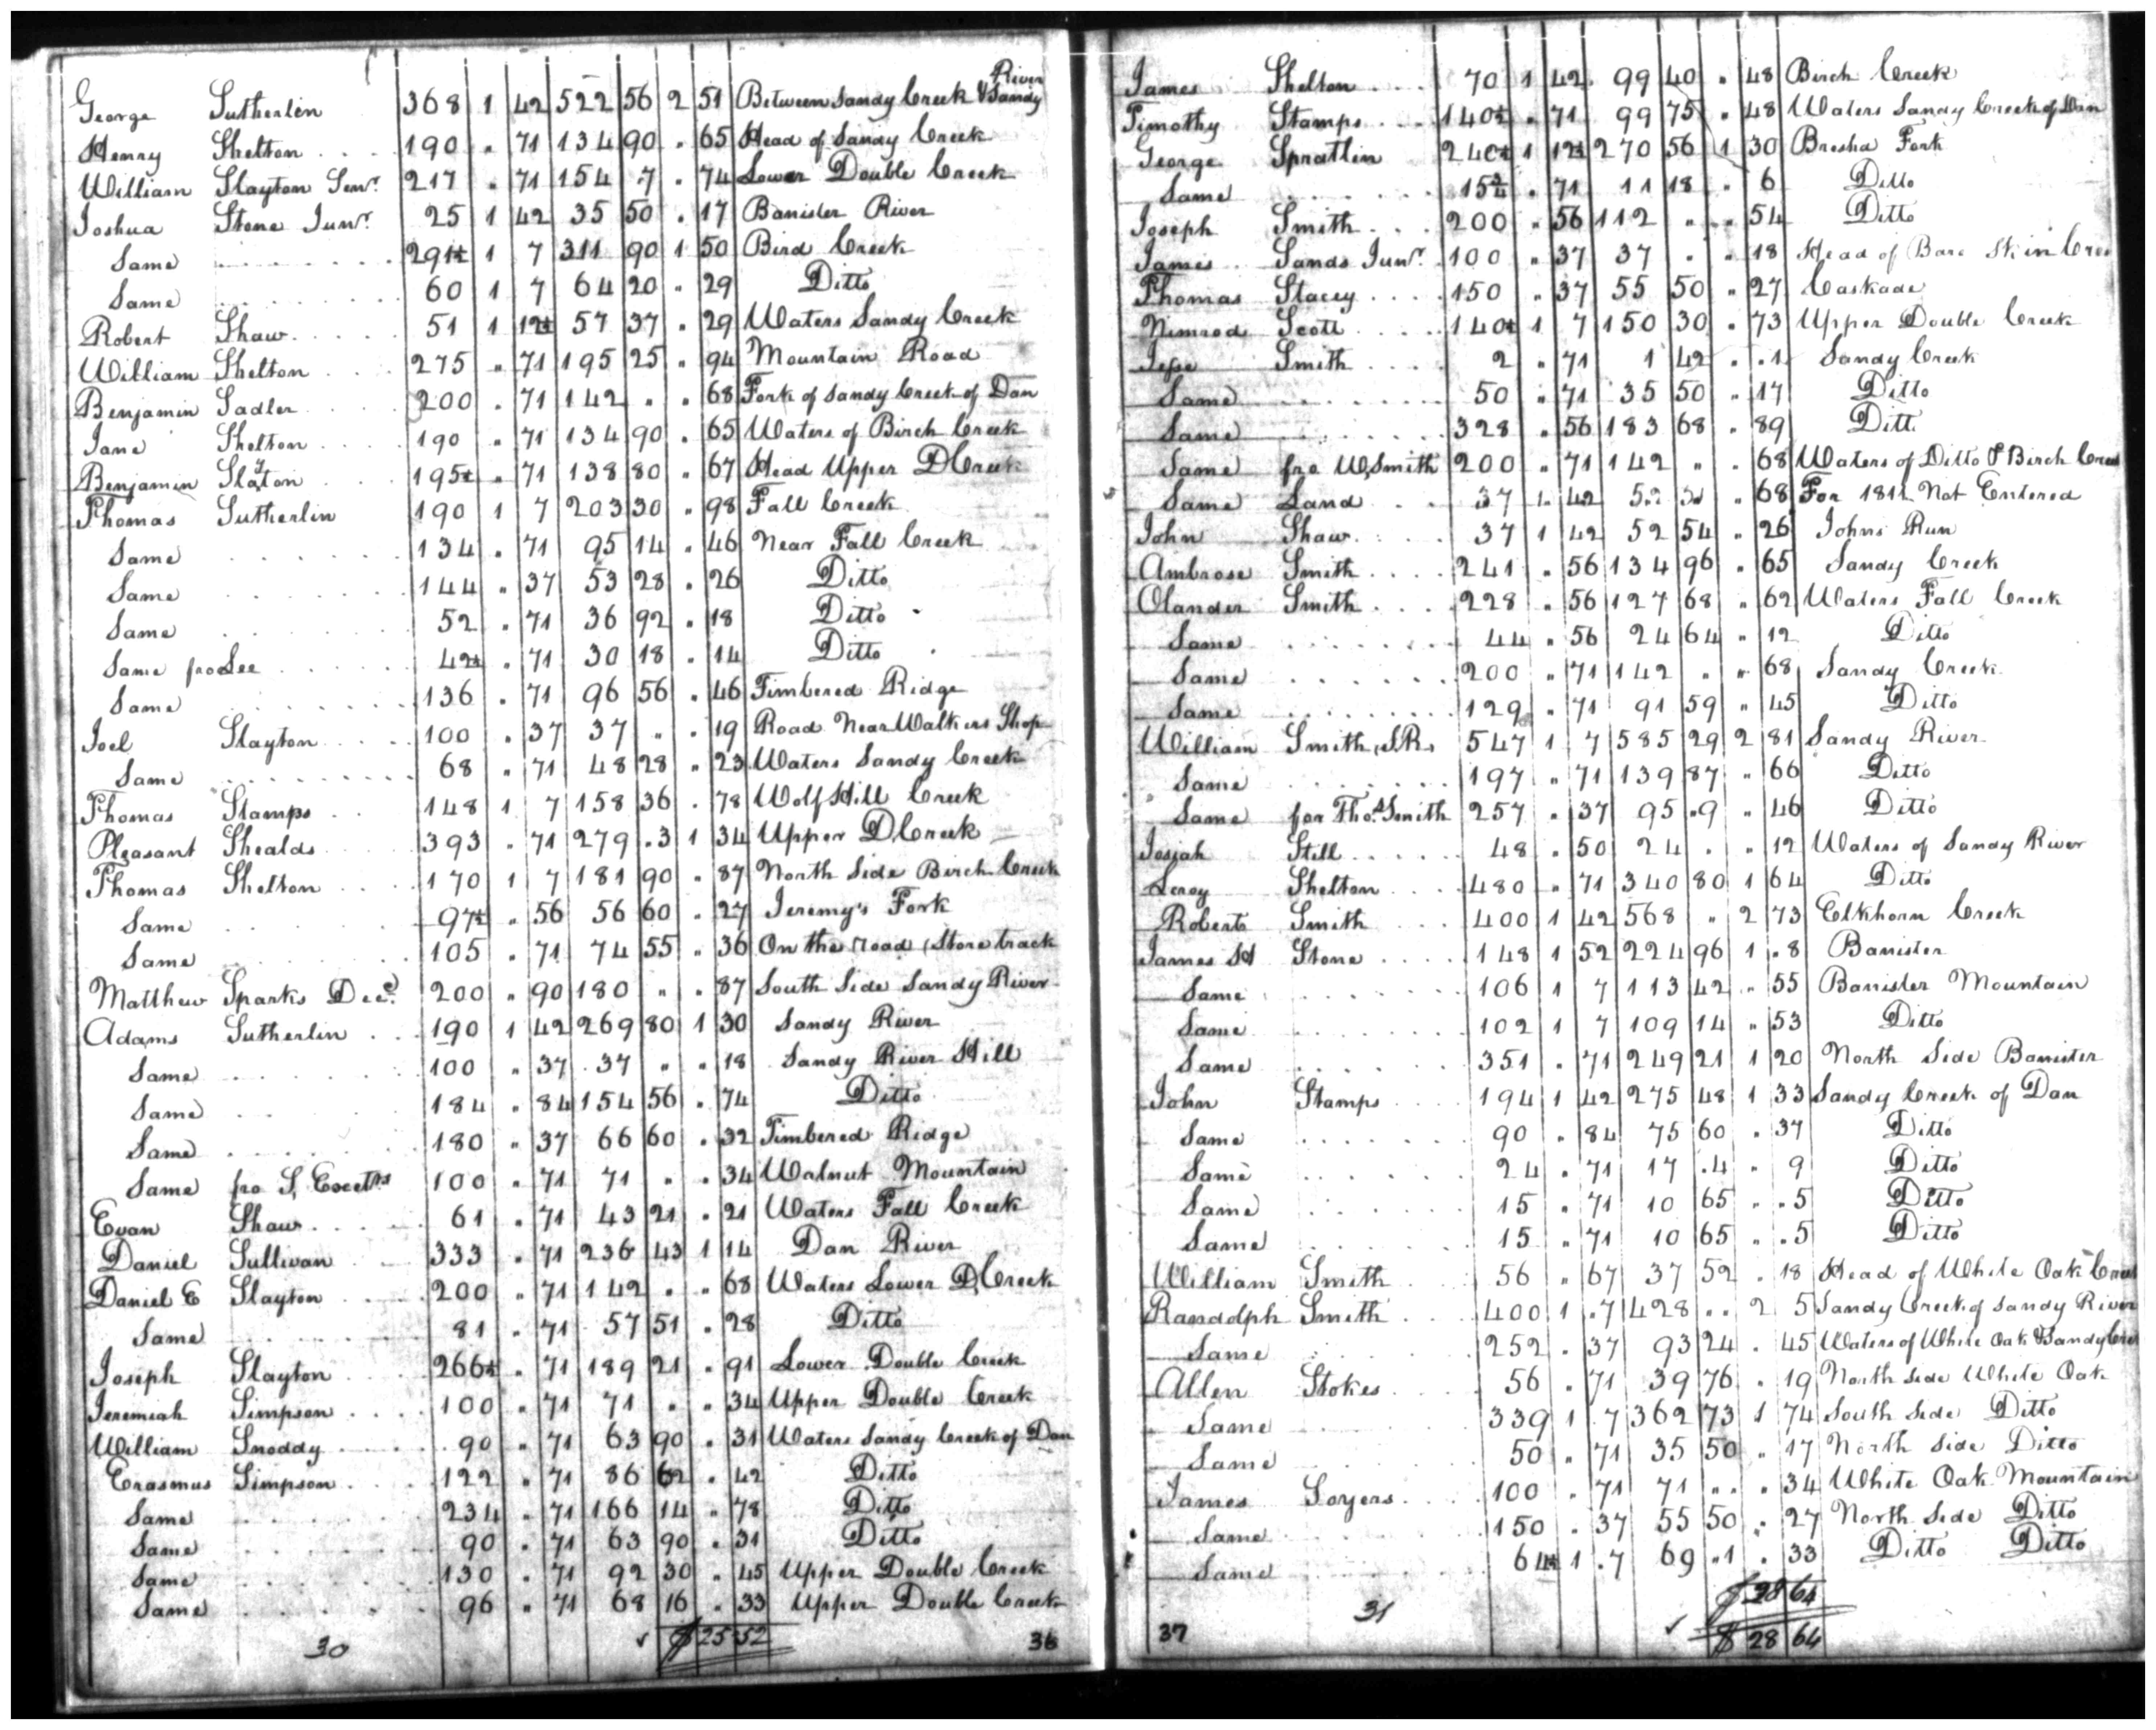 George Sutherlin 368 1 42 522 56 2 51 Between Sandy Creek & Sandy River
Henry Shelton 190 " 71 134 90 " 65 Head of Sandy Creek
William Slayton Senr. 217 " 71 154 .7 " 74 Lower Double Creek
Joshua Stone Junr. 25 1 42 35 50 " 17 Banister River
Same 291½ 1 7 311 90 1 50 Bird Creek
Same 60 1 7 64 20 " 29 Ditto
Robert Shaw 51 1 12½ 57 37 " 29 Waters Sandy Creek
William Shelton 275 " 71 195 25 " 94 Mountain Road
Benjamin Sadler 200 " 71 142 " " 68 Fork of Sandy Creek of Dan
Jane Shelton 190 " 71 134 90 " 65 Waters of Birch Creek
Benjamin Slayton 195½ " 71 138 80 " 67 Head Upper D Creek
Thomas Sutherlin 190 1 7 203 30 " 98 Fall Creek
Same 134 " 71 95 14 " 46 Near Fall Creek
Same 144 " 37 53 28 " 26 Ditto
Same 52 " 71 36 92 " 18 Ditto
Same pro Lee 42½ " 71 30 18 " 14 Ditto
Same 136 " 71 96 56 " 46 Timbered Ridge
Joel Slayton 100 " 37 37 " " 19 Road Near Walkers Shop
Same 68 " 71 48 28 " 23 Waters Sandy Creek
Thomas Stamps 148 1 7 158 36 " 78 Wolf Hill Creek
Pleasant Shealds 393 " 71 279 .3 1 34 Upper D Creek
Thomas Shelton 170 1 7 181 90 " 87 North Side Birch Creek
Same 97½ " 56 56 60 " 27 Jeremy's Fork
Same 105 " 71 74 55 " 36 On the road (Store track
Matthew Sparks Decd. 200 " 90 180 " " 87 South Side Sandy River
Adams Sutherlin 190 1 42 269 80 1 30 Sandy River
Same 100 " 37 37 " " 18 Sandy River Hill
Same 184 " 84 154 56 " 74 Ditto
Same 180 " 37 66 60 " 32 Timbered Ridge
Same pro S, Exectrs 100 " 71 71 " " 34 Walnut Mountain
Evan Shaw 61 " 71 43 21 " 21 Waters Fall Creek
Daniel Sullivan 333 " 71 236 43 1 14 Dan River
Daniel E Slayton 200 " 71 142 " " 68 Waters Lower D, Creek
Same 81 " 71 57 51 " 28 Ditto
Joseph Slayton 266½ " 71 189 21 " 91 Lower Double Creek
Jeremiah Simpson 100 " 71 71 " " 34 Upper Double Creek
William Snoddy 90 " 71 63 90 " 31 Waters Sandy Creek of Dan
Erasmus Simpson 122 " 71 86 62 " 42 Ditto
Same 234 " 71 166 14 " 78 Ditto
Same 90 " 71 63 90 " 31 Ditto
Same 130 " 71 92 30 " 45 Upper Double Creek
Same 96 " 71 68 16 " 33 Upper Double Creek
30 $ 25 52 36
James Shelton 70 1 42 99 40 " 48 Birch Creek
Timothy Stamps 140½ " 71 99 75 " 48 Waters Sandy Creek of Dan
George Spratlin 240½ 1 12½ 270 56 1 30 Bresha Fork
Same 15¾ " 71 11 18 " 6 Ditto
Joseph Smith 200 " 56 112 " " 54 Ditto
James Sands Junr. 100 " 37 37 " " 18 Head of Bare Skin Cree
Thomas Stacey 150 " 37 55 50 " 27 Caskade
Nimrod Scott 140½ 1 7 150 30 " 73 Upper Double Creek
Jesse Smith 2 " 71 1 42 " .1 Sandy Creek
Same 50 " 71 35 50 " 17 Ditto
Same 328 " 56 183 68 " 89 Ditt.
Same fro W, Smith 200 " 71 142 " " 68 Waters of Ditto & Birch Creek
Same Land 37 1 42 " 68 For 1811 Not Entered
John Shaw 37 1 42 52 54 " 26 Johns Run
Ambrose Smith 241 " 56 134 96 " 65 Sandy Creek
Olander Smith 228 " 56 127 68 " 62 Waters Fall Creek
Same 44 " 56 24 64 " 12 Ditto
Same 200 " 71 142 " " 68 Sandy Creek
Same 129 " 71 91 59 " 45 Ditto
William Smith, S.R. 547 1 7 585 29 2 81 Sandy River
Same 197 " 71 139 87 " 66 Ditto
Same for Thos. Smith 257 " 37 95 .9 " 46 Ditto
Josiah Still 48 " 50 24 " " 12 Waters of Sandy River
Leroy Shelton 480 " 71 340 80 1 64 Ditto
Roberts Smith 400 1 42 568 " 2 73 Elkhorn Creek
James H Stone 148 1 52 224 96 1 .8 Banister
Same 106 1 7 113 42 " 55 Banister Mountain
Same 102 1 7 109 14 " 53 Ditto
Same 351 " 71 249 21 1 20 North Side Banister
John Stamps 194 1 42 275 48 1 33 Sandy Creek of Dan
Same 90 " 84 75 60 " 37 Ditto
Same 24 " 71 17 .4 " 9 Ditto
Same 15 " 71 10 65 " .5 Ditto
Same 15 " 71 10 65 " .5 Ditto
William Smith 56 " 67 37 52 " 18 Head of White Oak Creek
Randolph Smith 400 1 .7 428 " 2 5 Sandy Creek of Sandy River
Same 252 " 37 93 24 " 45 Waters of White Oak & Sandy Cree
Allen Stokes 56 " 71 39 76 " 19 North Side White Oak
Same 339 1 .7 362 73 1 74 South Side Ditto
Same 50 " 71 35 50 " 17 North Side Ditto
James Soyers 100 " 71 71 " " 34 White Oak Mountain
Same 150 " 37 55 50 " 27 North Side Ditto
Same 64½ 1 .7 69 .1 " 33 Ditto Ditto
$ 28 64
37 31 $ 28 64